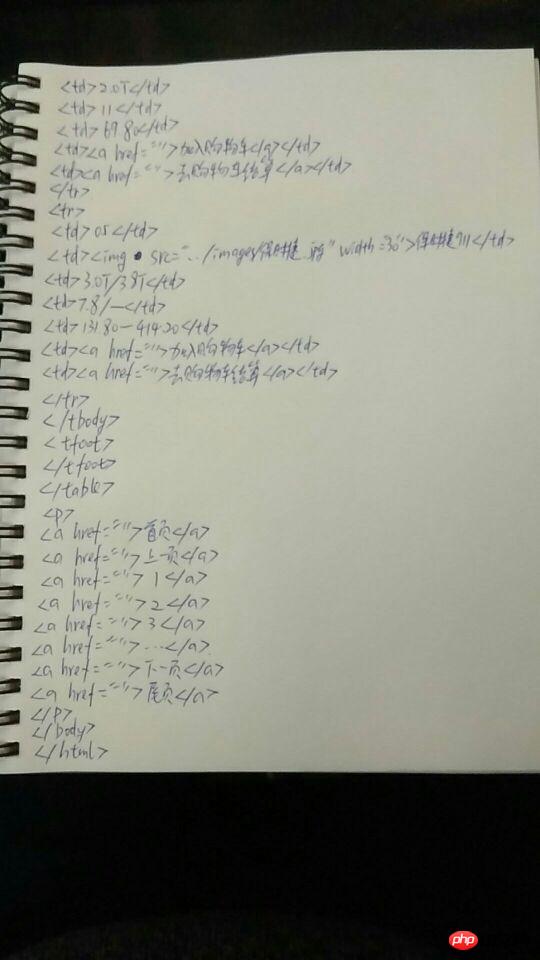 <td>2.0T</td>
<td>11</td>
<td>69.80</td>
<td><a href="">加入购物车</a></td>
<td><a href="">去购物车结算</a></td>
</tr>
<tr>
<td>05</td>
<td><img src="../images/保时捷.jpg" width="30">保时捷911</td>
<td>3.0T/3.8T</td>
<td>7.8/—</td>
<td>131.80—414.20</td>
<td><a href="">加入购物车</a></td>
<td><a href="">去购物车结算</a></td>
</tr>
</tbody>
<tfoot>
</tfoot>
</table>
<p>
<a href="">首页</a>
<a href="">上一页</a>
<a href="">1</a>
<a href="">2</a>
<a href="">3</a>
<a href="">...</a>
<a href="">下一页</a>
<a href="">尾页</a>
</p>
</body>
</html>
php